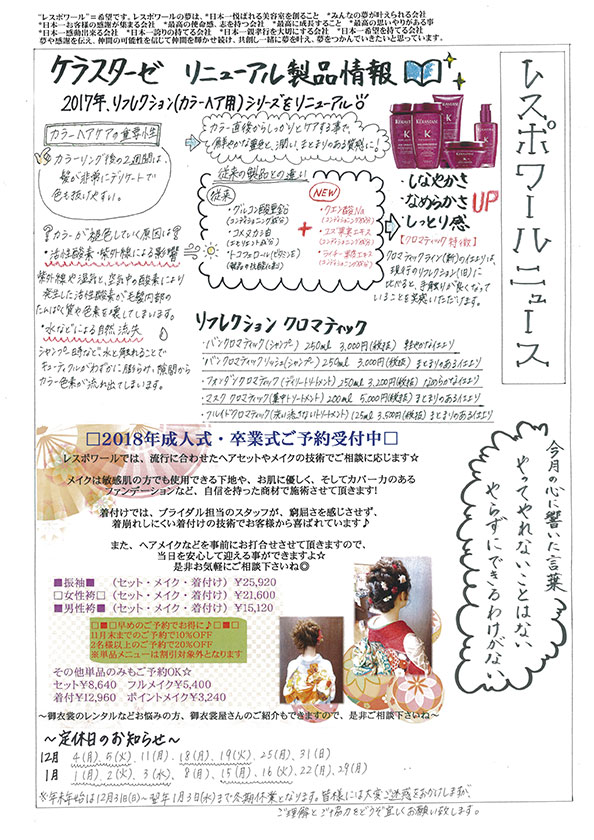 "レスポワール"=希望です。レスポワールの夢は、*日本一悦ばれる美容室を創ること　*みんなの夢が叶えられる会社
*日本一お客様の感謝が集まる会社　*最高の使命感、志を持つ会社　*最高に成長すること　*最高の思いやりがある事
*日本一感動出来る会社　*日本一誇りの持てる会社　*日本一親孝行を大切にする会社　*日本一希望を持てる会社
夢や感謝を伝え、仲間の可能性を信じて仲間を輝かせ続け、共創し一緒に夢を叶え、夢をつかんでいきたいと思っています。
ケラスターゼ　リニューアル製品情報
2017年、リフレクション(カラーヘア用)シリーズをリニューアル
レスポワールニュース
カラーヘアケアの重要性
カラーリング後の2週間は、
髪が非常にデリケートで
色も抜けやすい。
カラー直後からしっかりとケアする事で、
鮮やかな発色と、潤い、まとまりのある質感に!
従来の製品との違い
従来
・グルコン酸亜鉛
(コンディショニング成分)
・コメヌカ油
(エモリエント成分)
・トコフェロール(ビタミンE)
(製品の抗酸化剤)
+
NEW
・クエン酸Na
(コンディショニング成分)
・ユズ果実エキス
(コンディショニング成分)
・ライチー果皮エキス
(コンディショニング成分)
・しなやかさ
・なめらかさ
・しっとり感
UP
【クロマティック特徴】
クロマティックライン(新)の仕上りは、
現行のリフレクション(旧)に
比べると、手触りが良くなって
いることを実感いただけます。
カラーが褪色していく原因は
・活性酸素・紫外線による影響
紫外線や湿気と、空気中の酸素により
発生した活性酸素が毛髪内部の
たんぱく質や色素を壊してしまいます。
・水などによる自然流失
シャンプー時など、水と触れることで
キューティクルがわずかに膨らみ、隙間から
カラー色素が流れ出てしまいます。
リフレクション クロマティック
・バンクロマティック(シャンプー) 250ml 3,000円(税抜) 軽やかな仕上り
・バンクロマティックリッシュ(シャンプー) 250ml 3,000円(税抜) まとまりのある仕上り
・フォンダンクロマティック(デイリートリートメント) 250ml 3,200円(税抜) なめらかな仕上り
・マスク クロマティック(集中トリートメント) 200ml 5,000円(税抜) まとまりのある仕上り
・フルイドクロマティック(洗い流さないトリートメント) 125ml 3,500円(税抜) まとまりのある仕上り
□2018年成人式・卒業式ご予約受付中□
レスポワールでは、流行に合わせたヘアセットやメイクの技術でご相談に応じます☆
メイクは敏感肌の方でも使用できる下地や、お肌に優しく、そしてカバー力のある
ファンデーションなど、自信を持った商材で施術させて頂きます!
着付けでは、ブライダル担当のスタッフが、窮屈さを感じさせず、
着崩れしにくい着付けの技術でお客様から喜ばれています♪
また、ヘアメイクなどを事前にお打合せさせて頂きますので、
当日を安心して迎える事ができますよ☆
是非お気軽にご相談下さいね◎
■振袖■　(セット・メイク・着付け)　¥25,920
□女性袴□　(セット・メイク・着付け)　¥21,600
■男性袴■　(セット・メイク・着付け)　¥15,120
□■□早めのご予約でお得に♪□■□
11月末までのご予約で10%OFF
2名様以上のご予約で20%OFF
※単品メニューは割引対象外となります
その他単品のみもご予約OK☆
セット¥8,640　フルメイク¥5,400
着付¥12,960　ポイントメイク¥3,240
～御衣裳のレンタルなどお悩みの方、御衣裳屋さんのご紹介もできますので、是非ご相談下さいね～
今月の心に響いた言葉
やってやれないことはない
やらずにできるわけがない
～定休日のお知らせ～
12月　4(月)、5(火)、11(月)、18(月)、19(火)、25(月)、31(日)
1月　1(月)、2(火)、3(水)、8(月)、15(月)、16(火)、22(月)、29(月)
※年末年始は12月31(日)～翌年1月3日(水)まで冬期休業となります。皆様には大変ご迷惑をおかけしますが、
ご理解とご協力をどうぞ宜しくお願い致します。